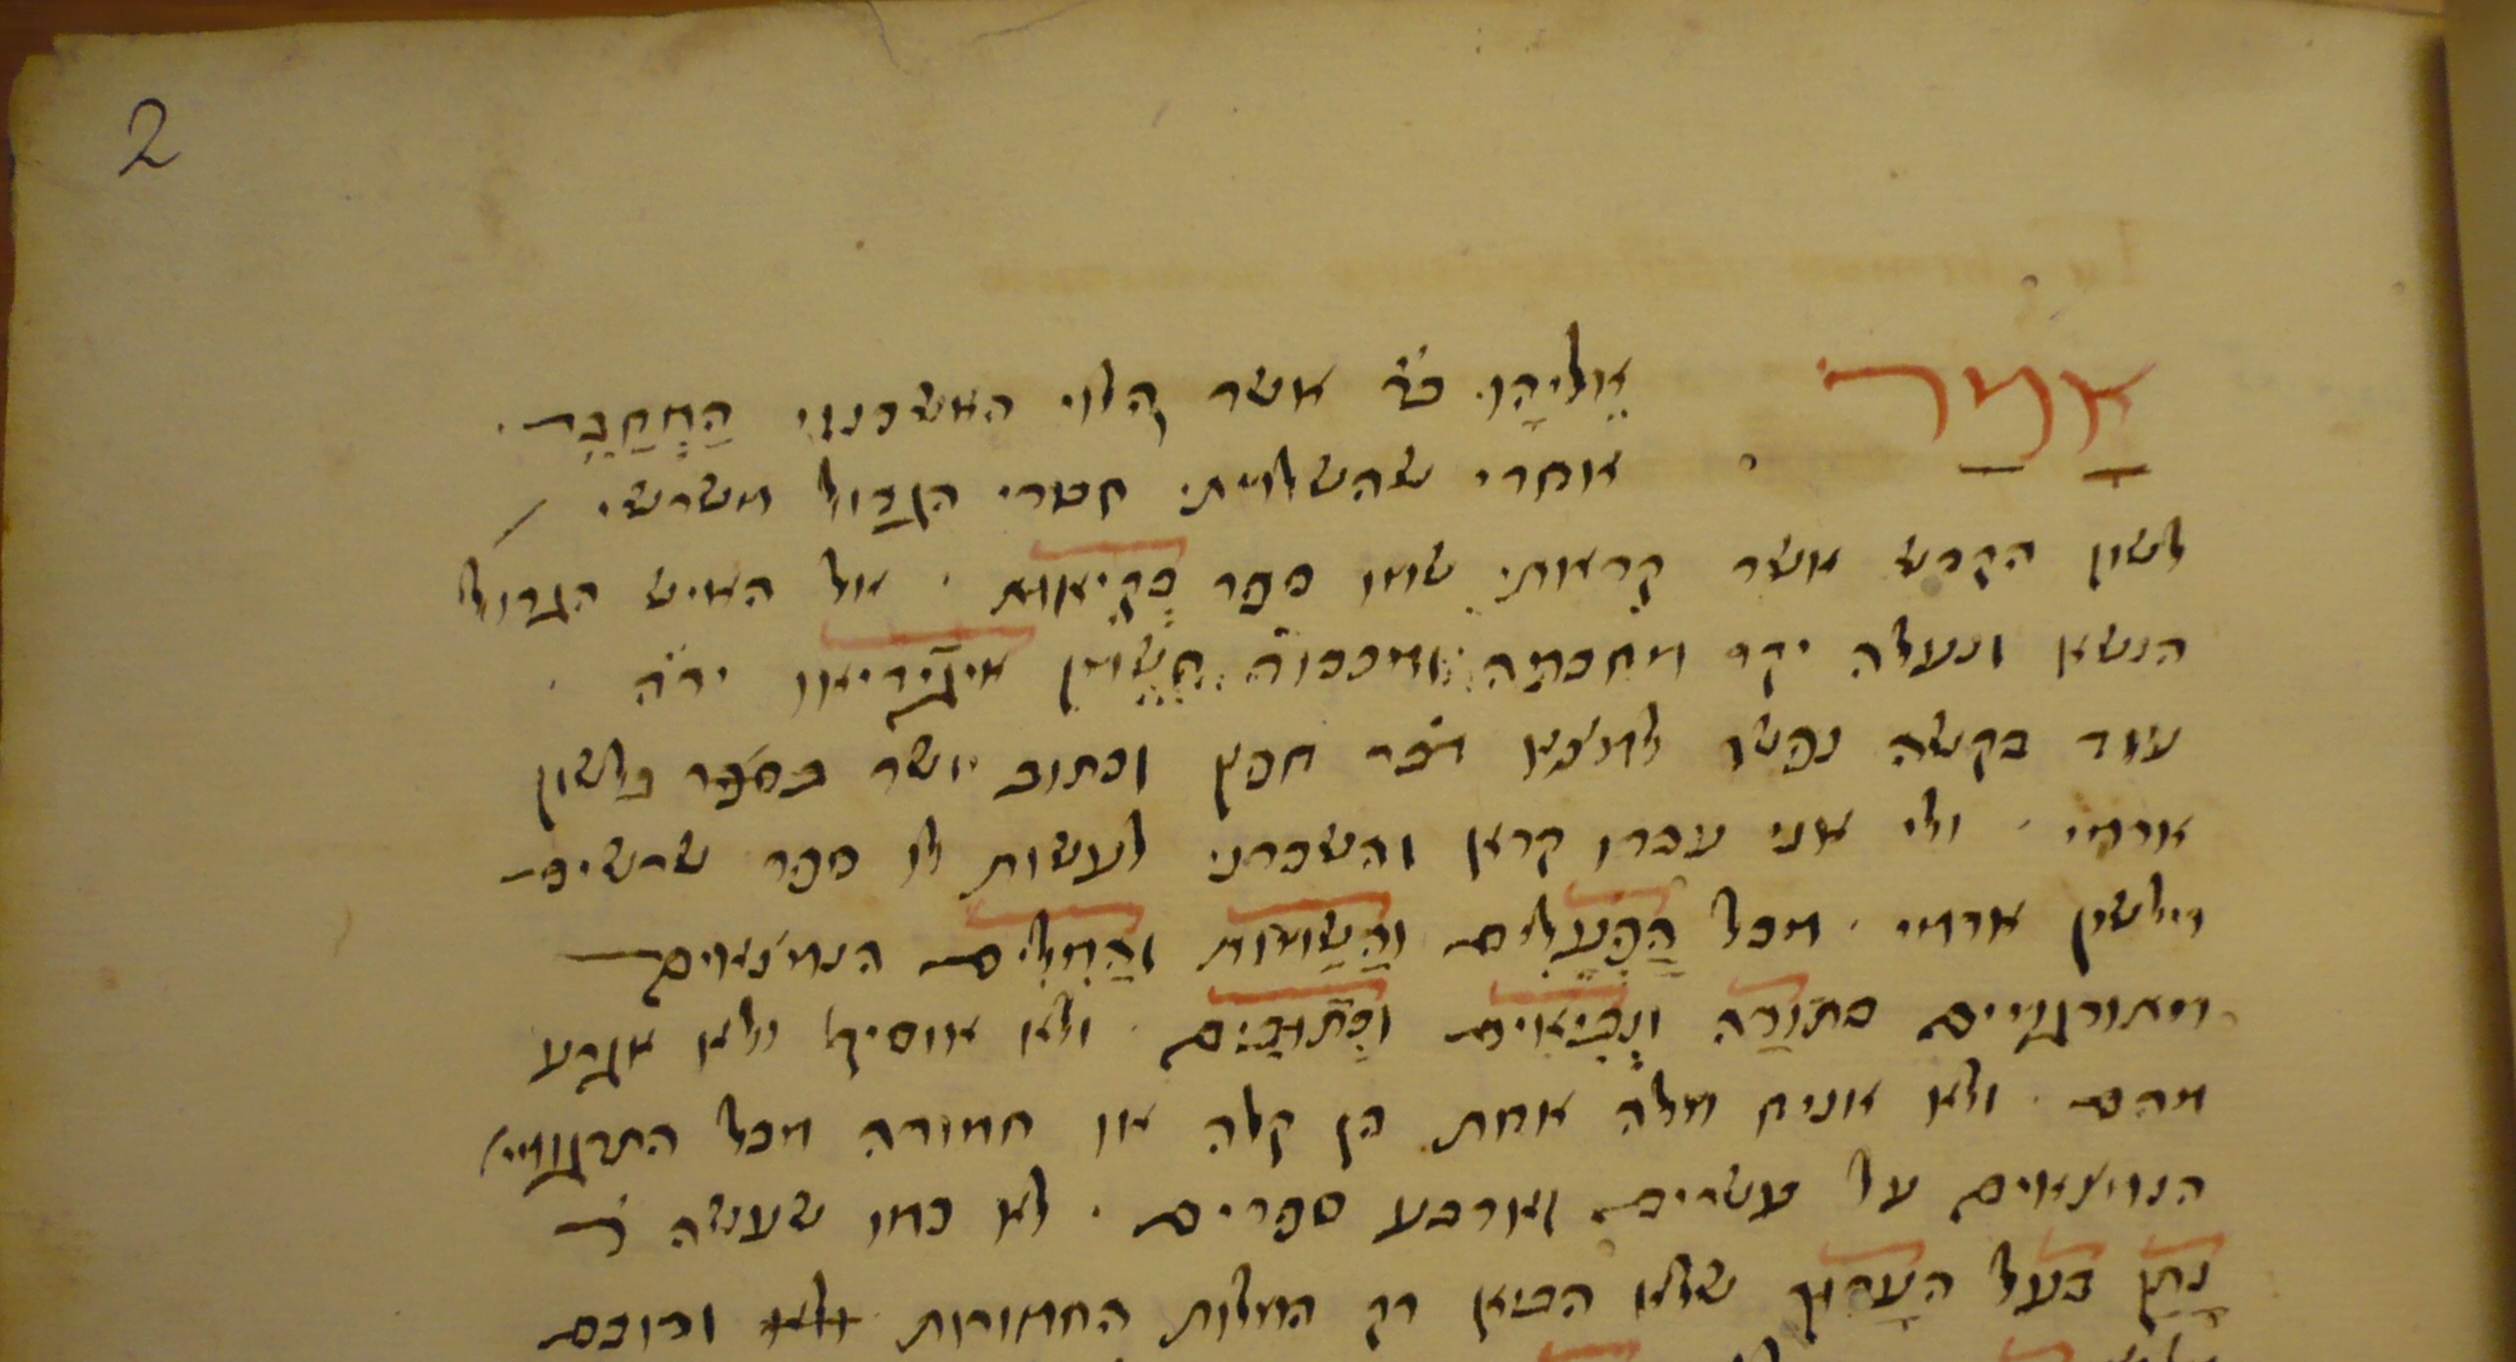 2
אָמַר אֵלִיָהוּ בׄרׄ אשר הלוי האשכנזי הַמְחַבֵּר ·
אחרי שהשלמתי חבורי הגדול משרשי
לשון הקדש אשר קראתי שמו ספר בְּקִיאוּת · אל האיש הגדול
הנשא ונעלה יקר מחכמה ומכבוד חשמן איגידיאו ירׄה ·
עוד בקשה נפשו למצא דבר חפץ וכתוב יושר בספר בלשון
ארמי · ולי אני עבדו קרא והשכרני לעשות לו ספר שרשים
מלשון ארמי · מכל הַפְעָלִים וְהַשֵּׁמוֹת וְהַמִלִים הנמצאים
מתורגמים בתוֹרָה וּנְבִיאִים וּכְתוּבִים · ולא אוסיף ולא אגרע
מהם · ולא אניח מלה אחת הן קלה או חמורה מכל התרגומי׳
הנמצאים על עשרים וארבע ספרים · לא כמו שעשה ר׳
נָתָן בעל הֶעָרוּךְ שלא הביא רק המלות החמורות ולא ורובם